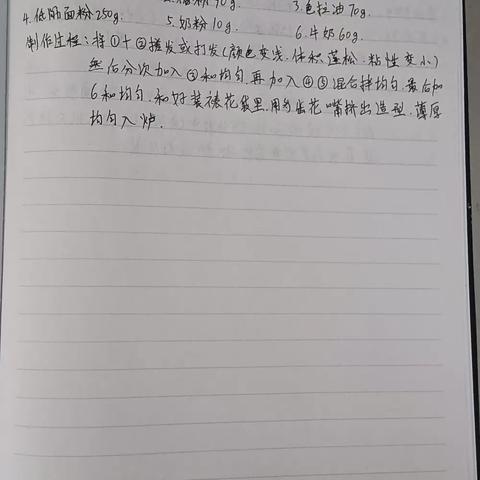 粉90g. 3.色拉油70g.
4.低脂面粉250g. 5.奶粉10g. 6.牛奶60g.
制作过程:将①+②搓发或打发(颜色变浅.体积蓬松.粘性变小)
然后分次加入③和均匀.再加入④⑤混合拌均匀.最后加
6和均匀.和好装裱花袋里.用曲花嘴挤出造型.薄厚
均匀入炉.